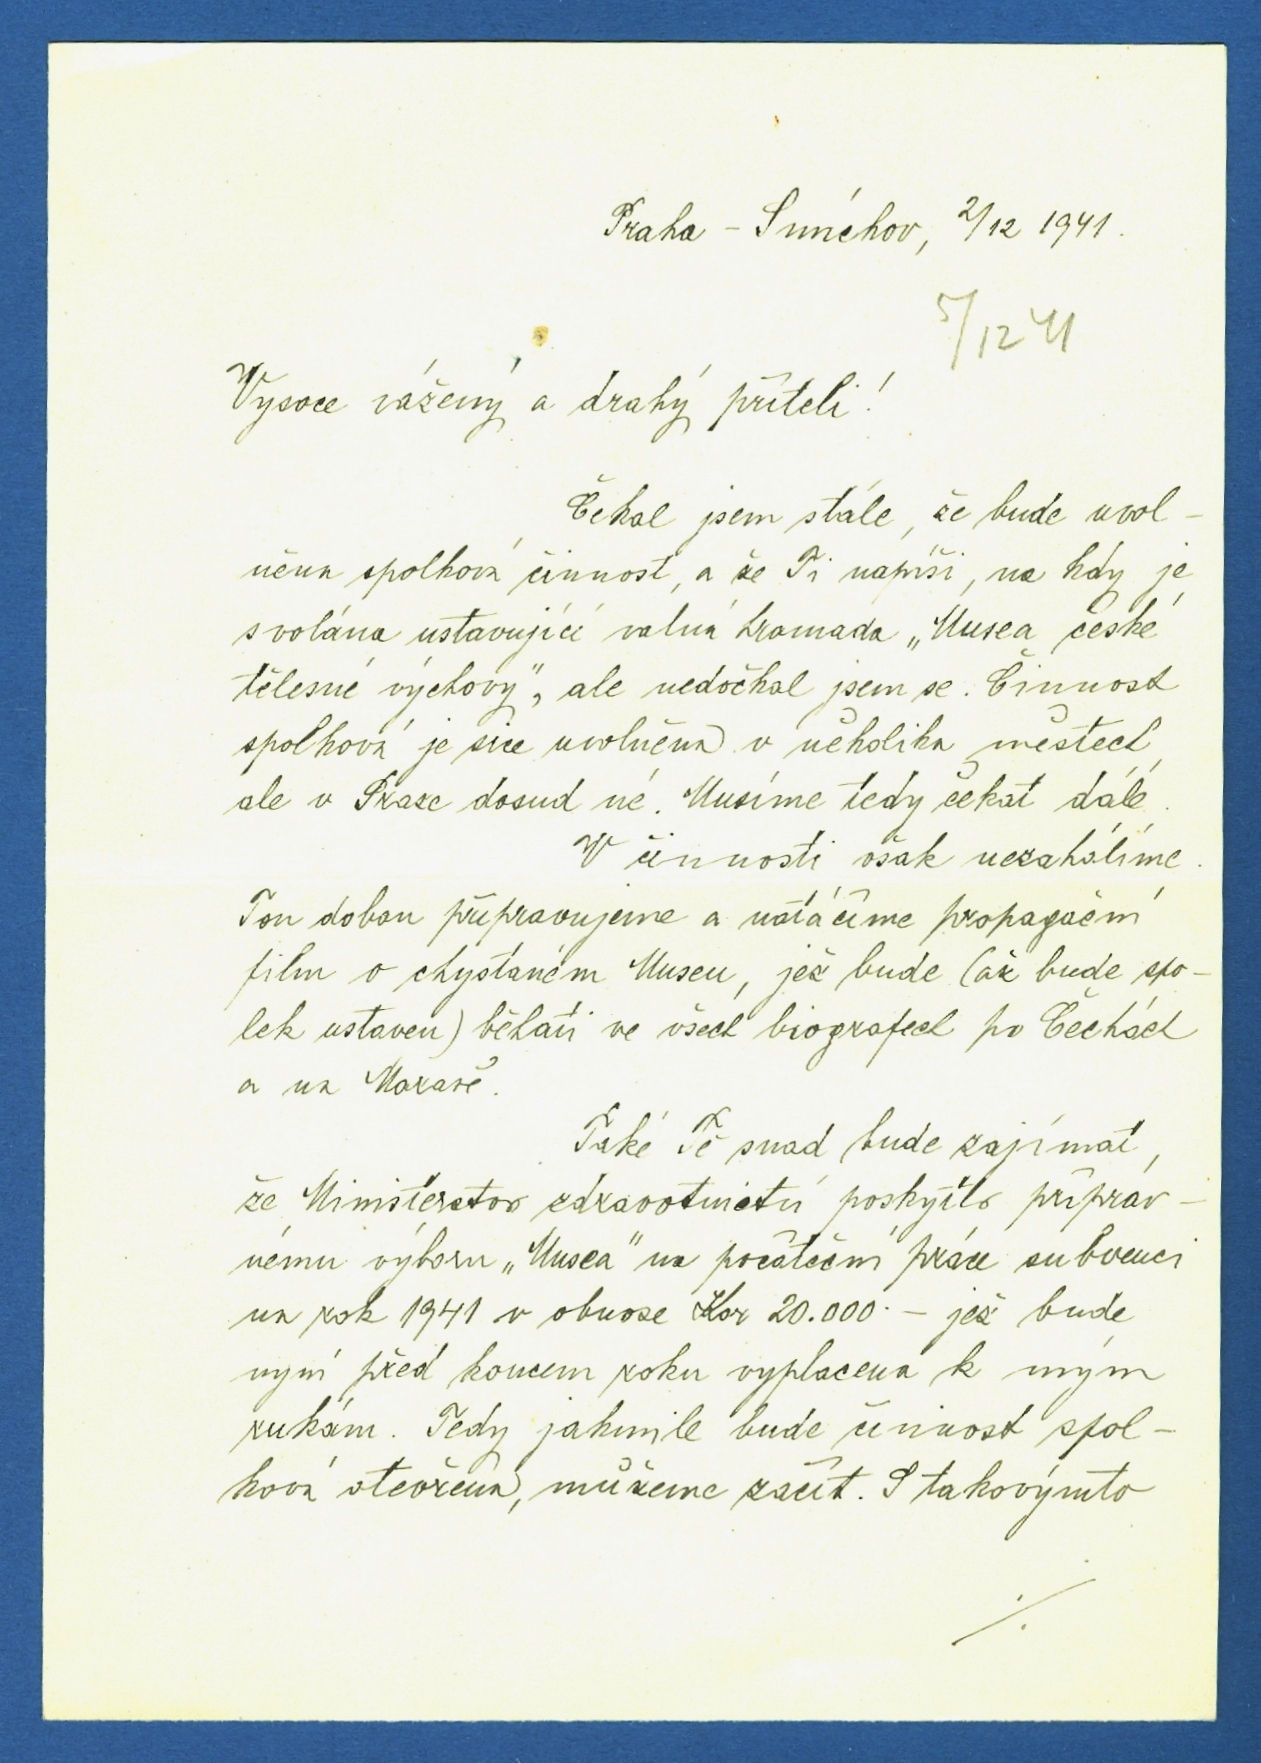 Praha – Smíchov, 2/12 1941.
5/12 41
Vysoce vážený a drahý příteli!
Čekal jsem stále, že bude uvol-
něna spolková činnost, a že Ti napíši, na kdy je
svolána ustavující valná hromada „Musea české
tělesné výchovy", ale nedočkal jsem se. Činnost
spolková je sice uvolněna v několika městech,
ale v Praze dosud né. Musíme tedy čekat dále.
V činnosti však nezahálíme.
Tou dobou připravujeme a natáčíme propagační
film o chystaném Museu, jež bude (až bude spo-
lek ustaven) běhati ve všech biografech po Čechách
a na Moravě.
Také Tě snad bude zajímat,
že Ministerstvo zdravotnictví poskytlo příprav-
nému výboru „Musea" na počáteční práce subvenci
na rok 1941 v obnose Kor 20.000·– jež bude
nyní před koncem roku vyplacena k mým
rukám. Tedy jakmile bude činnost spol-
ková otevřena, můžeme začít. S takovýmto
./.